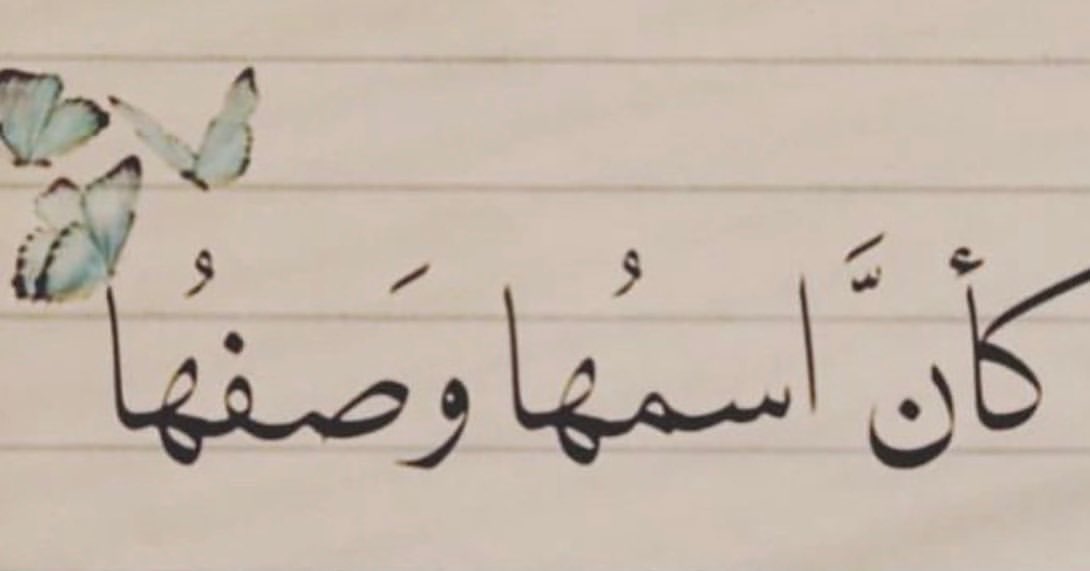 كأنَّ اسمُها وَصفُها